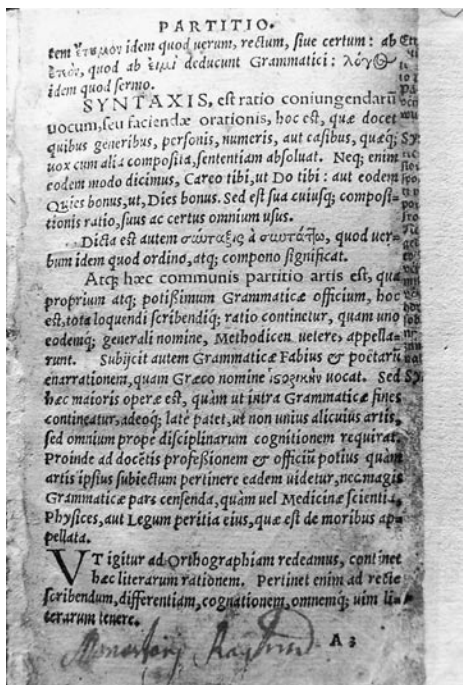 PARTITIO.
tem ἔτυμον idem quod uerum, rectum, siue certum: ab
quod ab εἰμὶ deducunt Grammatici: λόγος
idem quod sermo.
SYNTAXIS, est ratio coniungendarũ
uocum, seu faciendæ orationis, hoc est, quæ docet
quibus generibus, personis, numeris, aut casibus, quæq;
uox cum alia composita, sententiam absoluat. Neq; enim
eodem modo dicimus, Careo tibi, ut Do tibi: aut eodem
Quies bonus, ut, Dies bonus. Sed est sua cuiusq; composi-
tionis ratio, suus ac certus omnium usus.
Dicta est autem σύνταξις à συντάττω, quod uer-
bum idem quod ordino, atq; compono significat.
Atq; hæc communis partitio artis est, qua
proprium atq; potißimum Grammaticæ officium, hoc
est, tota loquendi scribendiq; ratio continetur, quam uno
eodemq; generali nomine, Methodicen uetere, appella-
runt. Subijcit autem Grammaticæ Fabius & poëtarũ
enarrationem, quam Græco nomine ἱστορικὴν uocat. Sed
hæc maioris operæ est, quàm ut intra Grammaticæ fines
contineatur, adeoq; latè patet, ut non unius alicuius artis,
sed omnium propè disciplinarum cognitionem requirat.
Proinde ad docẽtis profeßionem & officiũ potius quàm
artis ipsius subiectum pertinere eadem uidetur, nec magis
Grammaticæ pars censenda, quàm uel Medicinæ scientia,
Physices, aut Legum peritia eius, quæ est de moribus ap-
pellata.
VT igitur ad Orthographiam redeamus, continet
hæc literarum rationem. Pertinet enim ad rectè
scribendum, differentiam, cognationem, omnemq; uim li-
terarum tenere.
A 3